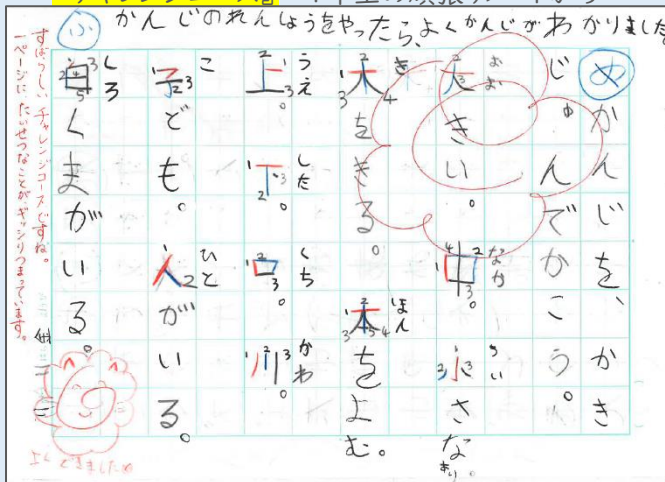 ふ かんじのれんしょうをやったら、よくかんじがわかりました
め かんじを、かき
じゅんでかこう。
おお なか ちい
大きい。中。小さなまり。
き ほん
木をきる。本をよむ。
うえ した くち かわ
上。下。口。川。
こ ひと
子ども。人がいる。
しろ
白くまがいる。
すばらしいチャレンジコースですね。
一ページにたいせつなことがギッシリつまっています。
よくできました